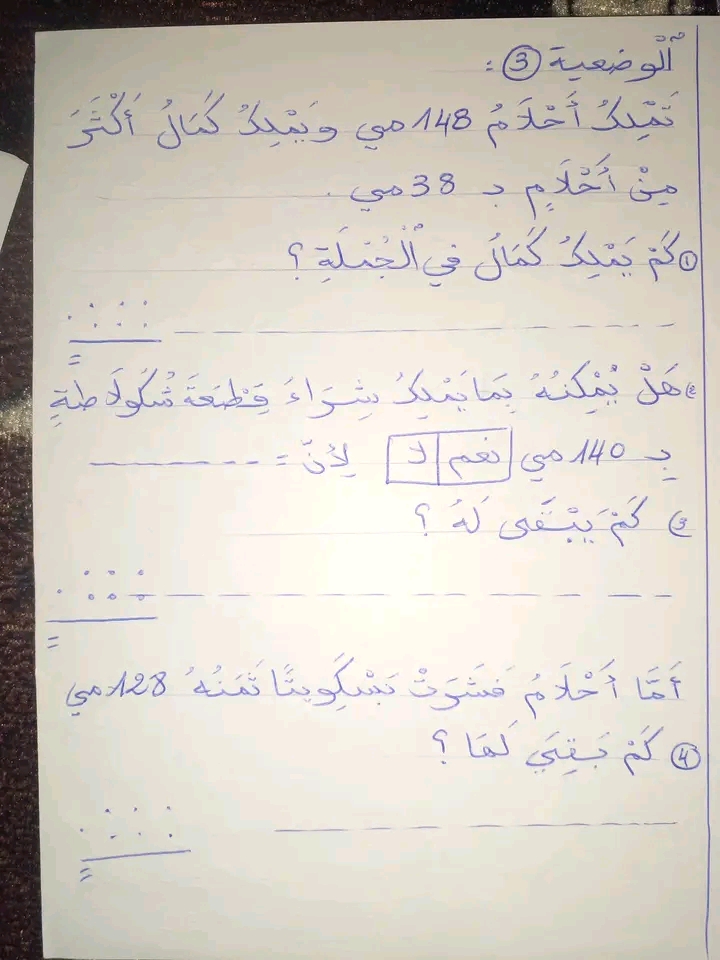 الْوضعية ③ :
تَمْلِكُ أَحْلَامُ 148 مي وَيَمْلِكُ كَمَالُ أَكْثَرَ
مِنْ أَحْلَامٍ بـ 38 مي .
① كَمْ يَمْلِكُ كَمَالُ في الْجُمْلَةِ ؟
=
② هَلْ يُمْكِنُهُ بِمَا يَمْلِكُ شِرَاءَ قِطْعَةَ شُكُولَاطةٍ
بِـ 140 مي نعم لا لِأَنّ :
③ كَمْ يَبْقَى لَهُ ؟
=
أَمَّا أَحْلَامُ فَشَرَتْ بَسْكَوِيتًا ثَمَنُهُ 128 مي
④ كَمْ بَقِيَ لَهَا ؟
=